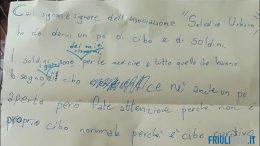 Cari signori e signore dell'associazione "Solidarietà Urbana",
ho da darvi un po' di cibo e di soldini.
dei miei risparmi,
I soldini sono per le medicine e tutto quello che hanno
bisogno e di cibo ce n'è anche un po'
aperto però fate attenzione perché non è
proprio cibo normale perché è cibo
FRIULI